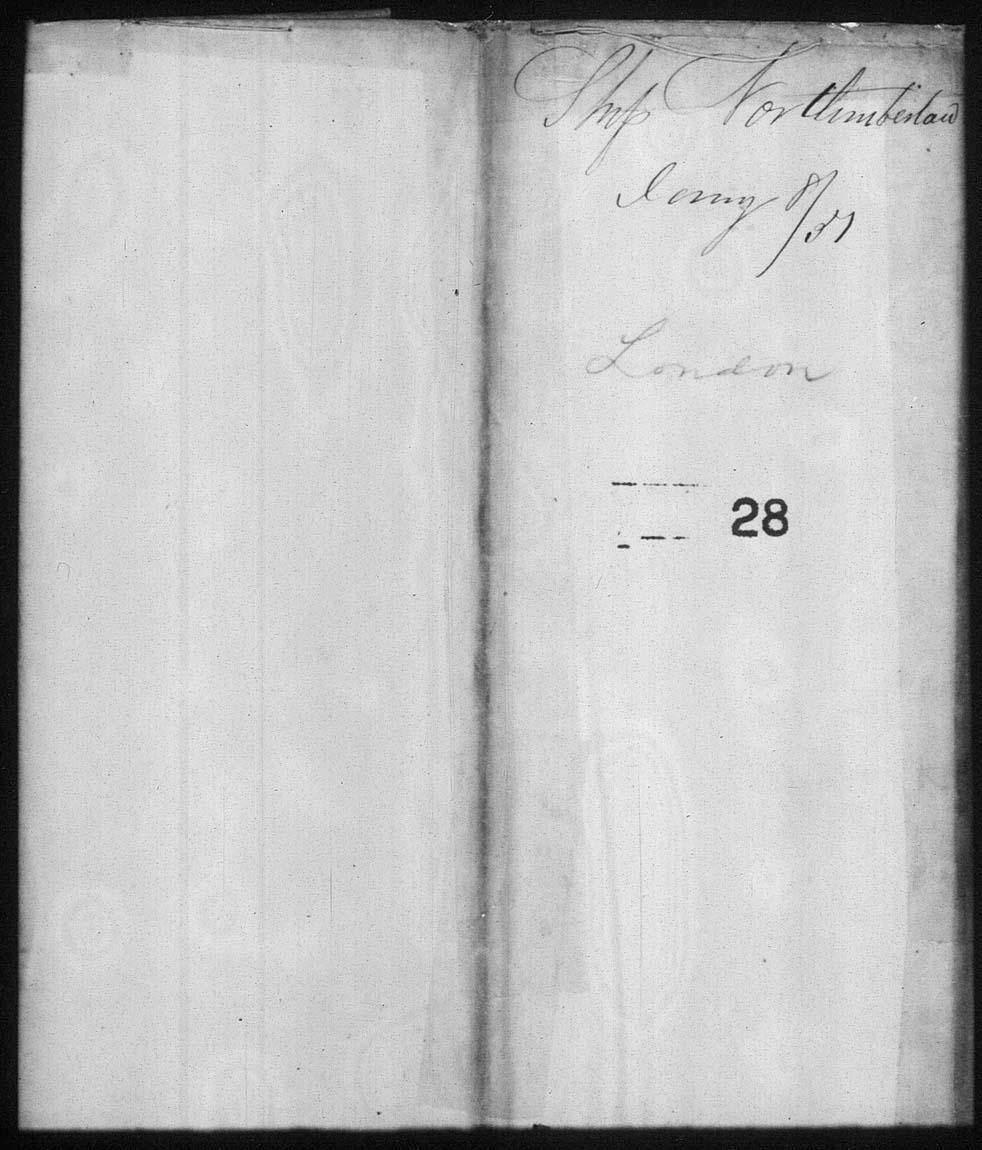 Ship Northumberland
Jany 8/51
London
28